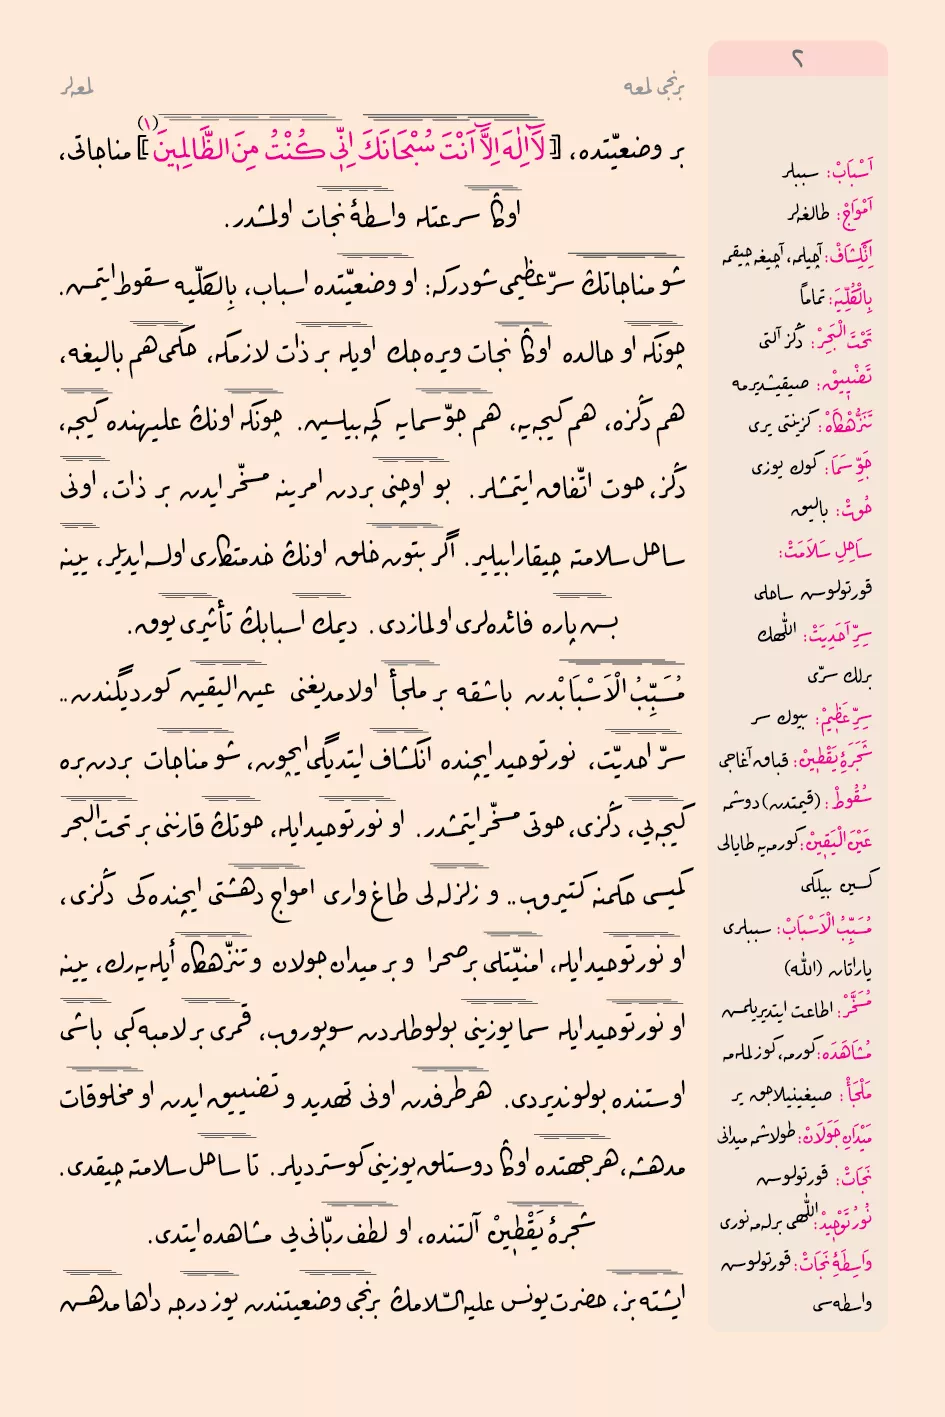 ٢
برنجى لمعه
لمعه‌لر
بر وضعيّتده، [لَٓا اِلٰهَ اِلَّٓا اَنْتَ سُبْحَانَكَ اِنّ۪ى كُنْتُ مِنَ الظَّالِم۪ينَ](١) مناجاتى،
اوڭا سرعتله واسطهٔ نجات اولمشدر.
شو مناجاتڭ سرّ عظيمى شودركه: او وضعيّتده اسباب، بِالكلّيه سقوط ايتمش.
چونكه او حالده اوڭا نجات ويره‌جك اويله بر ذات لازمكه، حكمى هم باليغه،
هم دڭزه، هم كيجه‌يه، هم جوّ سمايه كچه‌بيلسين. چونكه اونڭ عليهنده كيجه،
دڭز، حوت اتّفاق ايتمشلر. بو اوچنى بردن امرينه مسخّر ايدن بر ذات، اونى
ساحل سلامته چيقارابيلير. اگر بتون خلق اونڭ خدمتكارى اولسه ايديلر، يينه
بش پاره فائده‌لرى اولمازدى. ديمك اسبابڭ تأثيرى يوق.
مُسَبِّبُ الْاَسْبَابْدن باشقه بر ملجأ اولامديغنى عين اليقين كورديگندن..
سرّ احديّت، نور توحيد ايچنده انكشاف ايتديگى ايچون، شو مناجات بردن بره
كيجه‌يى، دڭزى، حوتى مسخّر ايتمشدر. او نور توحيد ايله، حوتڭ قارننى بر تحت البحر
كميسى حكمنه كتيروب.. و زلزله‌لى طاغ وارى امواج دهشتى ايچنده‌كى دڭزى،
او نور توحيد ايله، امنيّتلى بر صحرا و بر ميدان جولان و تنزّهكاه أيله‌يه‌رك، يينه
او نور توحيد ايله سما يوزينى بولوطلردن سوپوروب، قمرى بر لامبه كبى باشى
اوستنده بولونديردى. هر طرفدن اونى تهديد و تضييق ايدن او مخلوقات
مدهشه، هر جهتده اوڭا دوستلق يوزينى كوسترديلر. تا ساحل سلامته چيقدى.
شجرهٔ يَقْط۪ينْ آلتنده، او لطف ربّانى‌يى مشاهده ايتدى.
ايشته بز، حضرت يونس عليه السّلامڭ برنجى وضعيتندن يوز درجه داها مدهش
اَسْبَابْ: سببلر
اَمْوَاجْ: طالغه‌لر
اِنْكِشَافْ: آچيلمه، آچيغه چيقمه
بِالْكُلِّيَه: تمامًا
تَحْتَ الْبَحِرْ: دڭز آلتى
تَضْي۪يقْ: صيقيشديرمه
تَنَزُّهْكَاهْ: كزينتى يرى
جَوِّ سَمَا: كوك يوزى
حُوتْ: باليق
سَاحِلِ سَلَامَتْ:
قورتولوش ساحلى
سِرِّ اَحَدِيَتْ: اللّٰهڭ
برلك سرّى
سِرِّ عَظ۪يمْ: بيوك سر
شَجَرَهِٔ يَقْط۪ينْ: قباق آغاجى
سُقُوطْ: (قيمتدن) دوشمه
عَيْنَ الْيَق۪ينْ: كورمه‌يه طايالى
كسين بيلكى
مُسَبِّبُ الْاَسْبَابْ: سببلرى
ياراتان (اللّٰه)
مُسَخَّرْ: اطاعت ايتديريلمش
مُشَاهَدَه: كورمه، كوزلمله‌مه
مَلْجَأْ: صيغينيلاجق ير
مَيْدَانِ جَوَلَانْ: طولاشمه ميدانى
نَجَاتْ: قورتولوش
نُورُ تَوْح۪يدْ: اللّٰهى برله‌مه نورى
وَاسِطَهِٔ نَجَاتْ: قورتولوش
واسطه‌سى